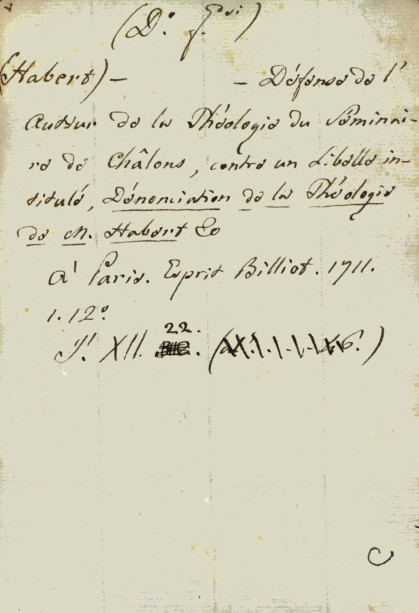 (D.º f.
(Habert) — — Défense de l'
Auteur de la Théologie du Séminai-
re de Châlons, contre un Libelle in-
titulé, Dénonciation de la Théologie
de M. Habert &c
A' Paris. Esprit Billiot. 1711.
1. 12º
22.
J! XII.
C